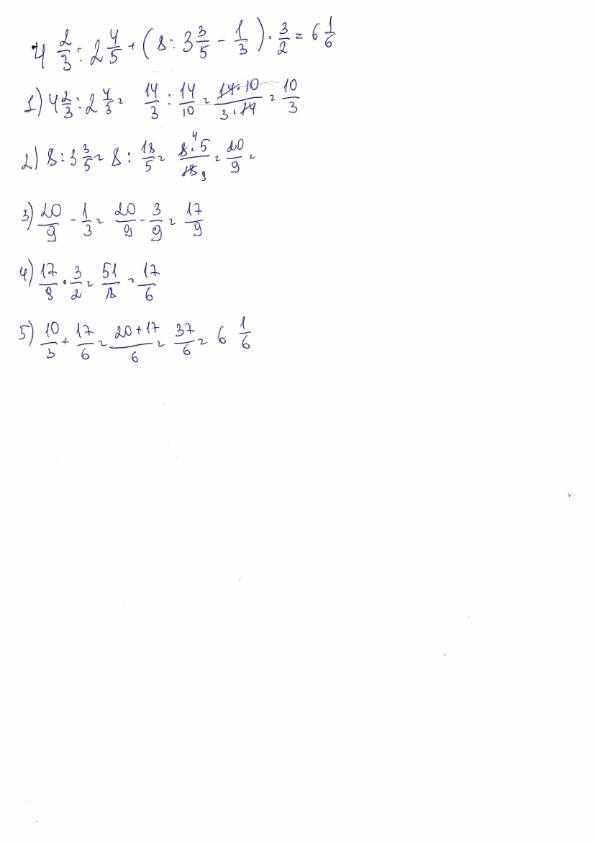 4 2/3 : 2 4/5 + (8 : 3 3/5 - 1/3) · 3/2 = 6 1/6
1) 4 2/3 : 2 4/3 = 14/3 : 14/10 = 14·10/3·14 = 10/3
2) 8 : 3 3/5 = 8 : 18/5 = 8·5/18 4 9 = 20/9 =
3) 20/9 - 1/3 = 20/9 - 3/9 = 17/9
4) 17/9 · 3/2 = 51/18 = 17/6
5) 10/3 + 17/6 = 20+17/6 = 37/6 = 6 1/6